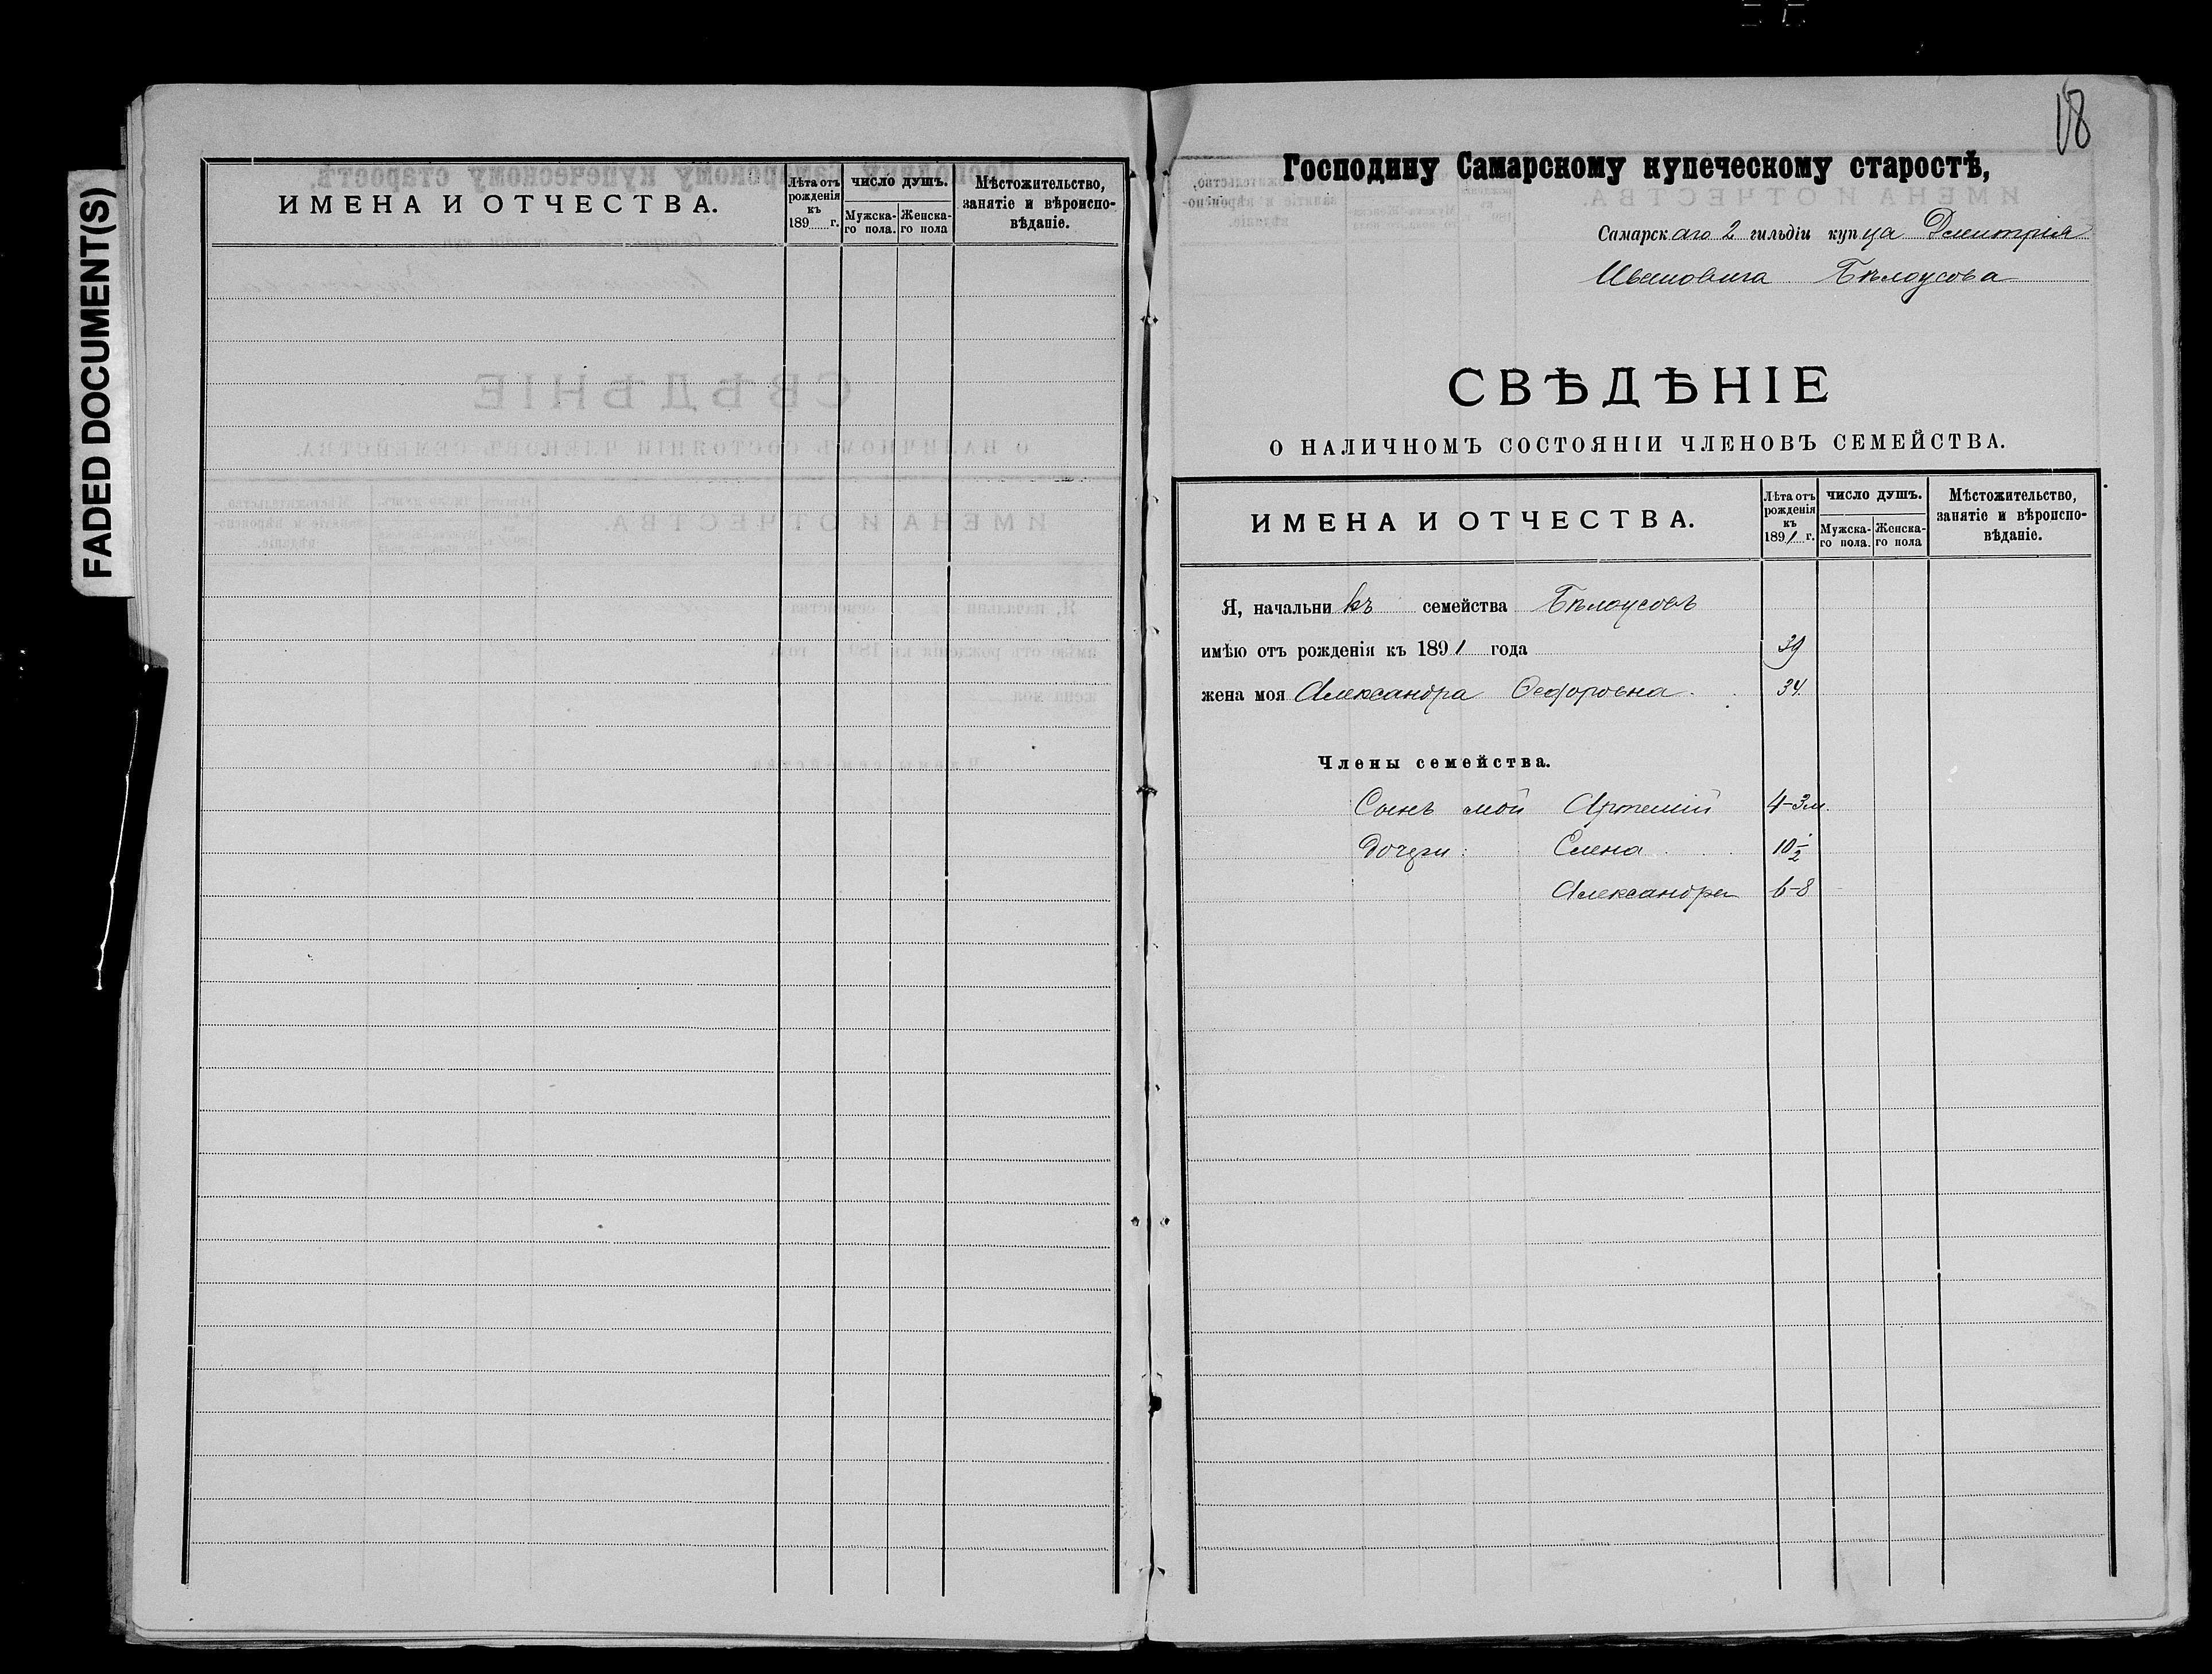 FADED DOCUMENT(S)
ИМЕНА И ОТЧЕСТВА.
Лѣта отъ
рожденія
къ
189 г.
ЧИСЛО ДУШЪ.
Мужска-
го пола.
Женска-
го пола
Мѣстожительство,
занятіе и вѣроиспо-
вѣданіе.
18
Господину Самарскому купеческому старостѣ,
Самарскаго 2 гильдіи купца Дмитрія
Ивановича Бѣлоусова
СВѢДѢНІЕ
О НАЛИЧНОМЪ СОСТОЯНІИ ЧЛЕНОВЪ СЕМЕЙСТВА.
ИМЕНА И ОТЧЕСТВА.
Лѣта отъ
рожденія
къ
1891 г.
ЧИСЛО ДУШЪ.
Мужска-
го пола.
Женска-
го пола
Мѣстожительство,
занятіе и вѣроиспо-
вѣданіе.
Я, начальникъ семейства Бѣлоусовъ
имѣю отъ рожденія къ 1891 года 39
жена моя Александра Ѳедоровна. 34.
Члены семейства.
Сынъ мой Артемій 4-3м.
Дочери: Елена 10 1/2
Александра 6-8